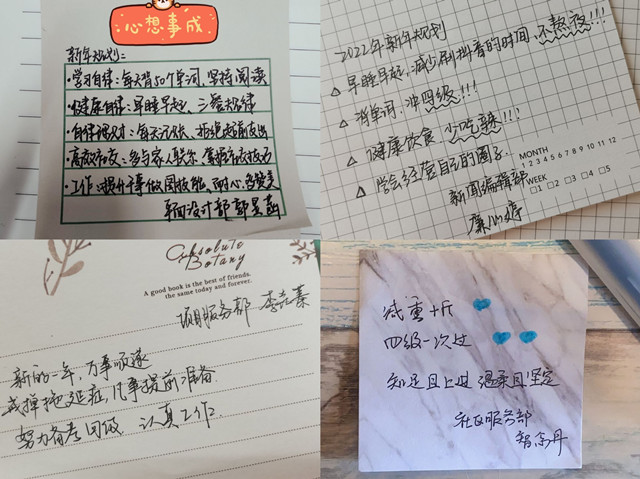 心想事成
新年规划:
·学习自律:每天背50个单词,坚持阅读
·健康自律:早睡早起,三餐规律
·高效社交:多与家人联系,掌握社交技巧
·工作:提升干事做图技能,耐心,多赞美
平面设计部 郭昱菡
2022年新年规划
△ 早睡早起,减少刷抖音的时间,不熬夜!!!
△ 背单词,冲四级!!!
△ 健康饮食,少吃辣!!!
△ 学会经营自己的圈子.
新闻编辑部
MONTH
1 2 3 4 5 6 7 8 9 10 11 12
WEEK
□1 □2 □3 □4 □5
Absolute
Botany
A good book is the best of friends.
the same today and forever.
项目服务部
新的一年,万事顺遂
戒掉拖延症,凡事提前准备
努力备考四级 认真工作.
减重十斤
四级一次过
知足且上进 温柔且坚定
社区服务部